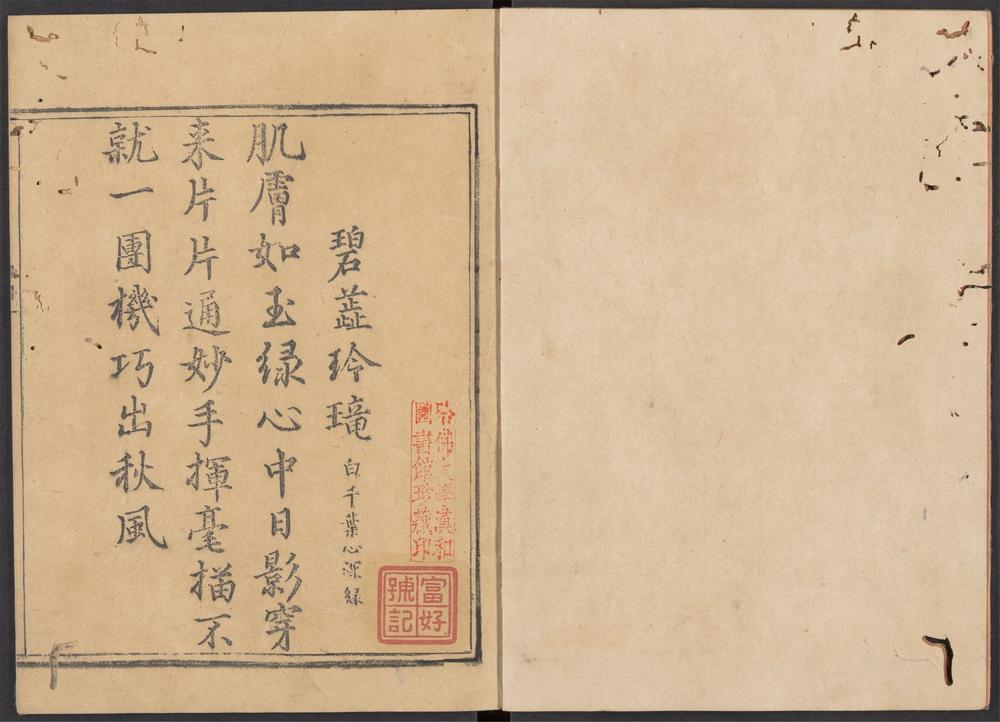 哈佛大學漢和
圖書館珍藏印
富好
號記
碧蕋玲瓏 白千葉心深緑
肌膚如玉緑心中日影穿
来片片通妙手揮毫描不
就一團機巧出秋風